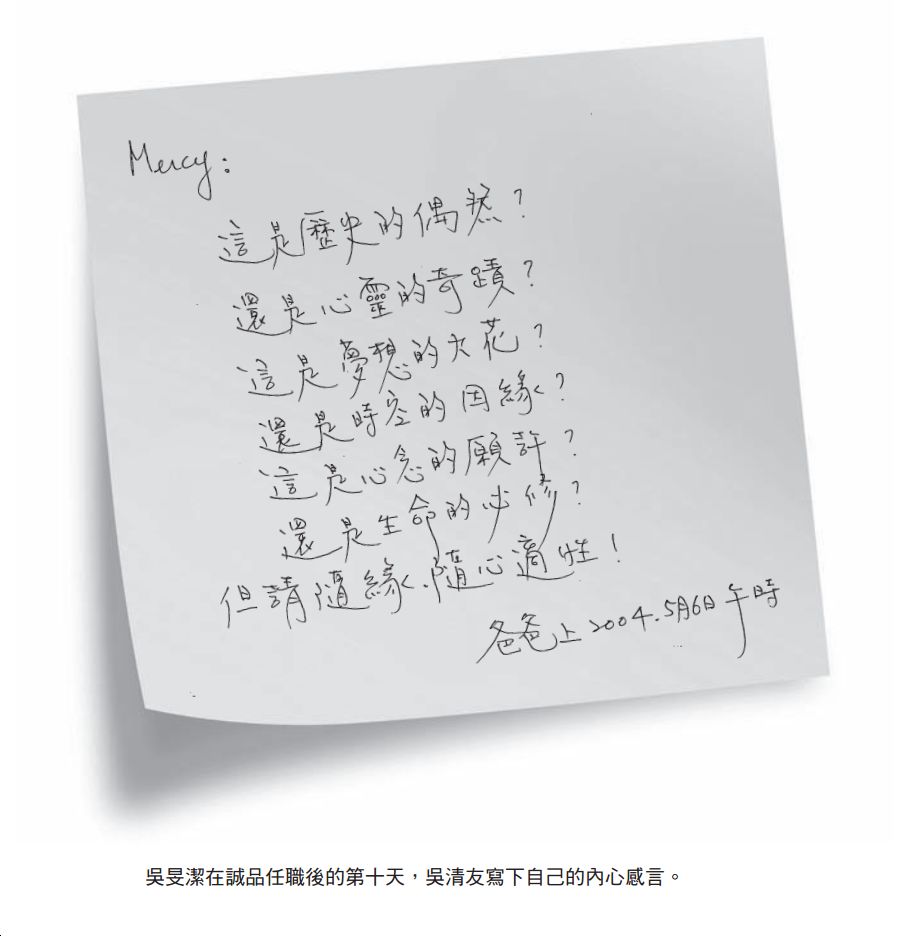 Mercy:
這是歷史的偶然?
還是心靈的奇蹟?
這是夢想的火花?
還是時空的因緣?
這是心念的願許?
還是生命的必修?
但請隨緣.隨心適性!
爸爸上 2004.5月6日午時
吳旻潔在誠品任職後的第十天，吳清友寫下自己的內心感言。